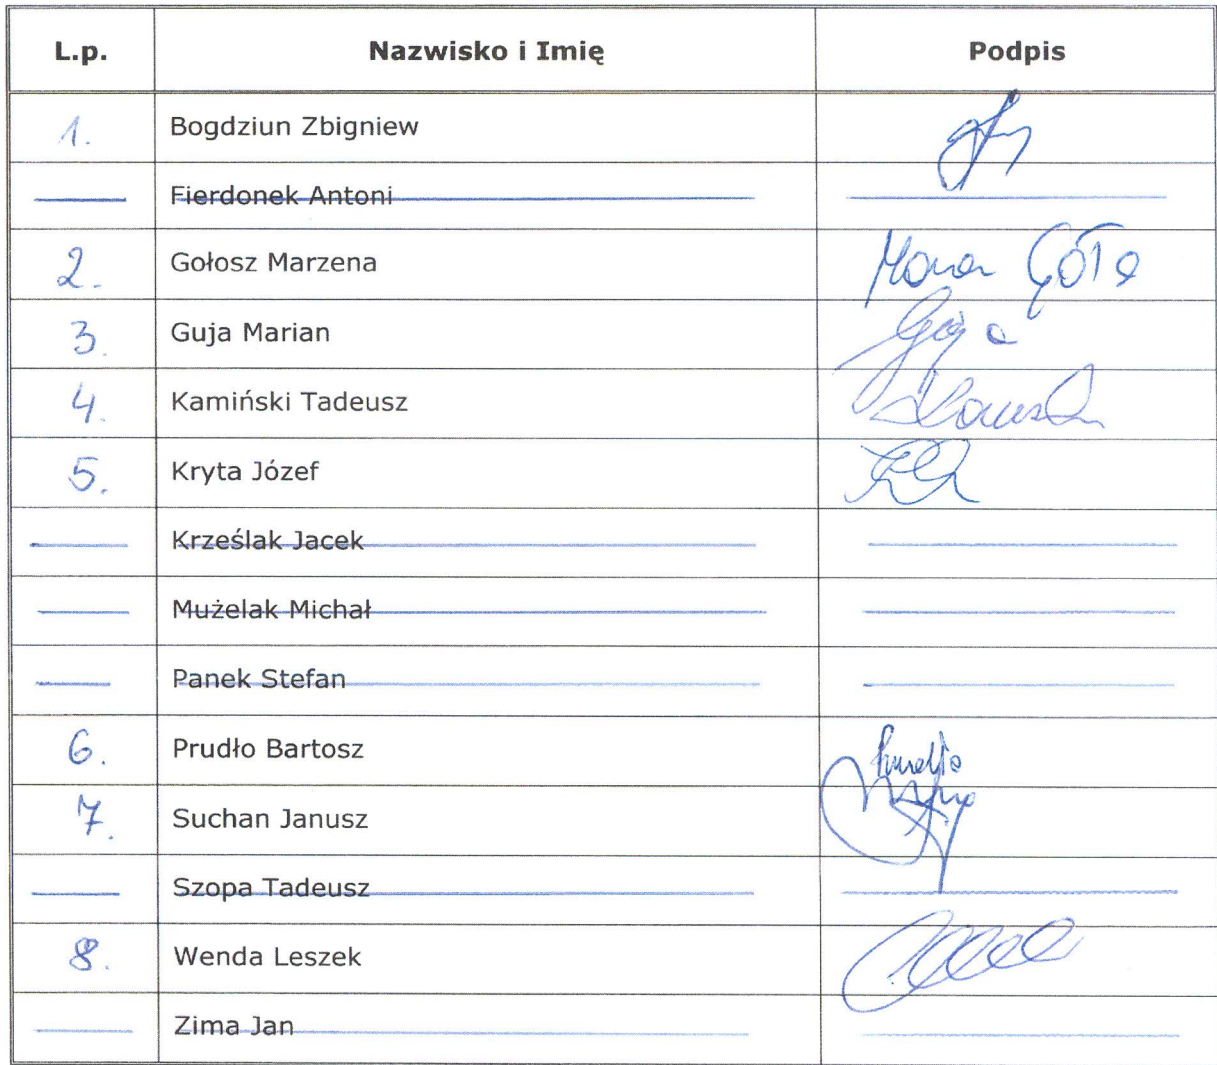 L.p. Nazwisko i Imię Podpis
1. Bogdziun Zbigniew
Fierdonek Antoni
2. Gołosz Marzena
3. Guja Marian
4. Kamiński Tadeusz
5. Kryta Józef
Krześlak Jacek
Mużelak Michał
Panek Stefan
6. Prudło Bartosz
7. Suchan Janusz
Szopa Tadeusz
8. Wenda Leszek
Zima Jan